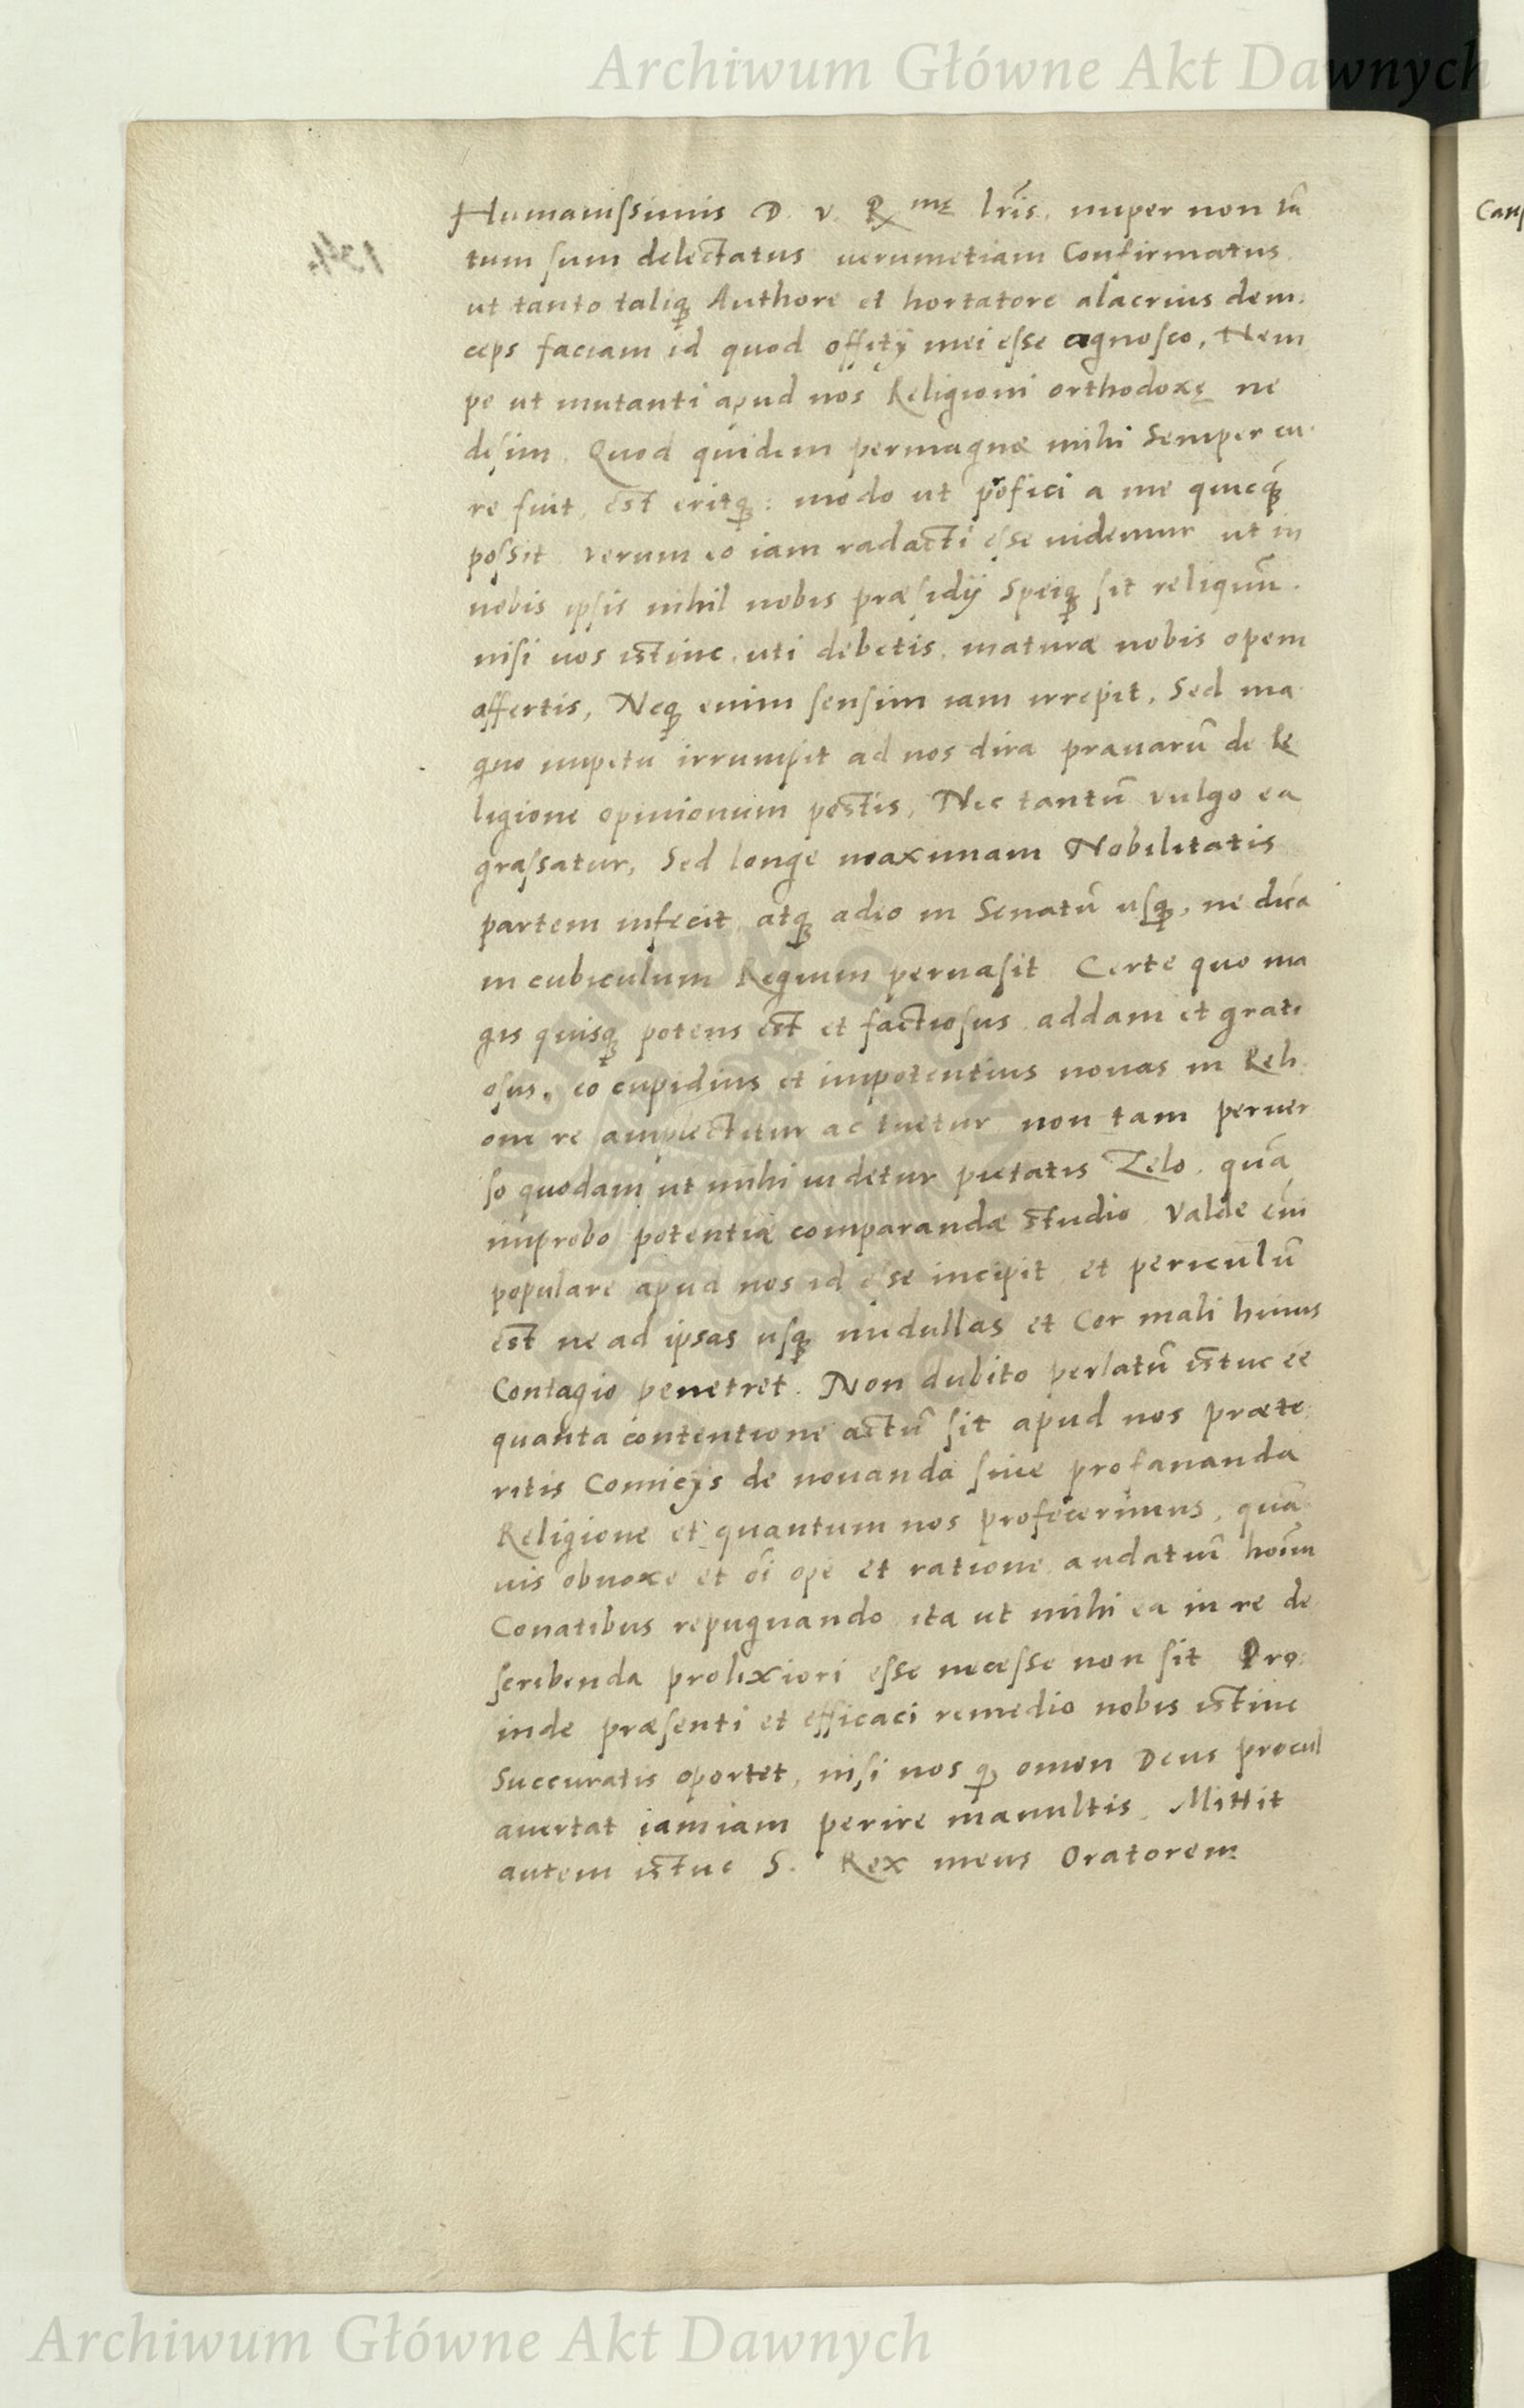 Archiwum Główne Akt Dawnych
Humanissimis D. v. R.mę lr̃is. nuper non tã
tum sum delectatus uerumetiam Confirmatus
ut tanto taliq; Authore et hortatore alacrius dein:
ceps faciam id quod offitÿ mei esse agnosco, Nem
pe ut nutanti apud nos Religioni orthodoxę ne
desim. Quod quidem permagnæ mihi Semper cu:
re fuit, est eritq; : modo ut p̃ofici a me quicq̃
possit verum eo iam radacti esse uidemur ut in
nobis ipsis nihil nobis præsidÿ Speiq; sit reliquũ.
nisi uos istinc. uti debetis. maturæ nobis opem
affertis, Neq; enim sensim iam irrepit, Sed ma
gno impetu irrumpit ad nos dira prauarũ de Re
ligione opinionum pestis, Nec tantũ vulgo ea
grassatur, Sed longe maximam Nobilitatis
partem infecit atq; adeo in Senatũ usq;, ne dicã
in cubiculum Regium peruasit Certe quo ma
gis quisq; potens est et factiosus addam et grati
osus, eo cupidius et impotentius nouas in Reli
one re amplectitur ac tuetur non tam peruer
so quodam ut mihi uidetur pietatis Zelo. quã
improbo potentiæ comparandæ studio. Valde em̃
populare apud nos id esse incipit et periculũ
est ne ad ipsas usq; medullas et Cor mali huius
Contagio penetret. Non dubito perlatũ istuc ee
quanta contentione actũ sit apud nos præte:
ritis Comicÿs de nouanda siue profananda
Religione et quantum nos profecerimus, quã:
uis obnoxe et oĩ ope et ratione audatiũ hoĩm
Conatibus repugnando ita ut mihi ea in re de
scribenda prolixiori esse necesse non sit Pro:
inde præsenti et efficaci remedio nobis istinc
Succuratis oportet, nisi nos q; omen Deus procul
auertat iamiam perire mauultis. Mittit
autem istuc S. Rex meus Oratorem
Archiwum Główne Akt Dawnych